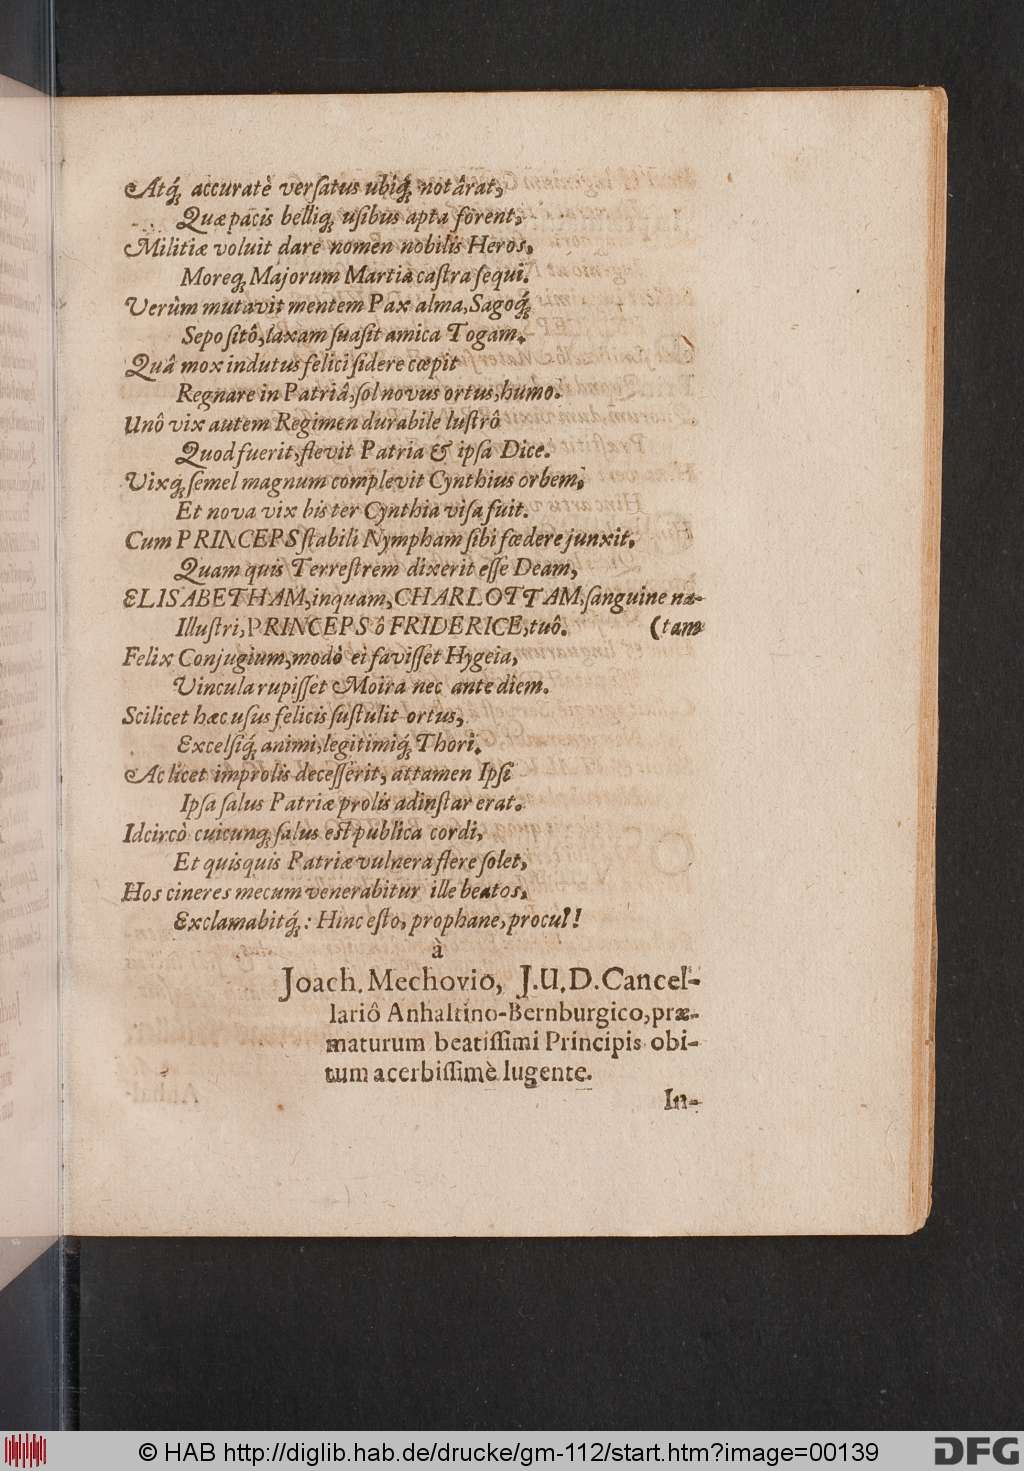 Atq́; accuratè verſatus ubiq́; notârat,
Quæ pacis belliq; uſibus apta forent,
Militiæ voluit dare nomen nobilis Heros,
Moreq; Majorum Martia caſtra ſequi.
Verùm mutavit mentem Pax alma, Sagoq́;
Sepoſitô, laxam ſuaſit amica Togam.
Quâ mox indutus felici ſidere cœpit
Regnare in Patriâ, ſol novus ortus, humo.
Unô vix autem Regimen durabile luſtrô
Quod fuerit, flevit Patria & ipſa Dice.
Vixq́; ſemel magnum complevit Cynthius orbem,
Et nova vix bis ter Cynthia viſa fuit.
Cum PRINCEPS ſtabili Nympham ſibi fœdere junxit,
Quam quis Terreſtrem dixerit eſſe Deam,
ELISABETHAM, inquam, CHARLOTTAM, ſanguine na-
Illuſtri, PRINCEPS ô FRIDERICE, tuô. (tam
Felix Conjugium, modò ei faviſſet Hygeia,
Vincula rupiſſet Moira nec ante diem.
Scilicet hæc uſus felicis ſuſtulit ortus,
Excelſiq́; animi, legitimiq́; Thori.
Ac licet improlis deceſſerit, attamen Ipſi
Ipſa ſalus Patriæ prolis ad inſtar erat.
Idcircò cuicunq; ſalus eſt publica cordi,
Et quisquis Patriæ vulnera flere ſolet,
Hos cineres mecum venerabitur ille beatos,
Exclamabitq́;: Hinc eſto, prophane, procul!
à
Joach. Mechovio, J.U.D. Cancel-
lariô Anhaltino-Bernburgico, præ-
maturum beatiſſimi Principis obi-
tum acerbiſſimè lugente.
In-
© HAB http://diglib.hab.de/drucke/gm-112/start.htm?image=00139
DFG